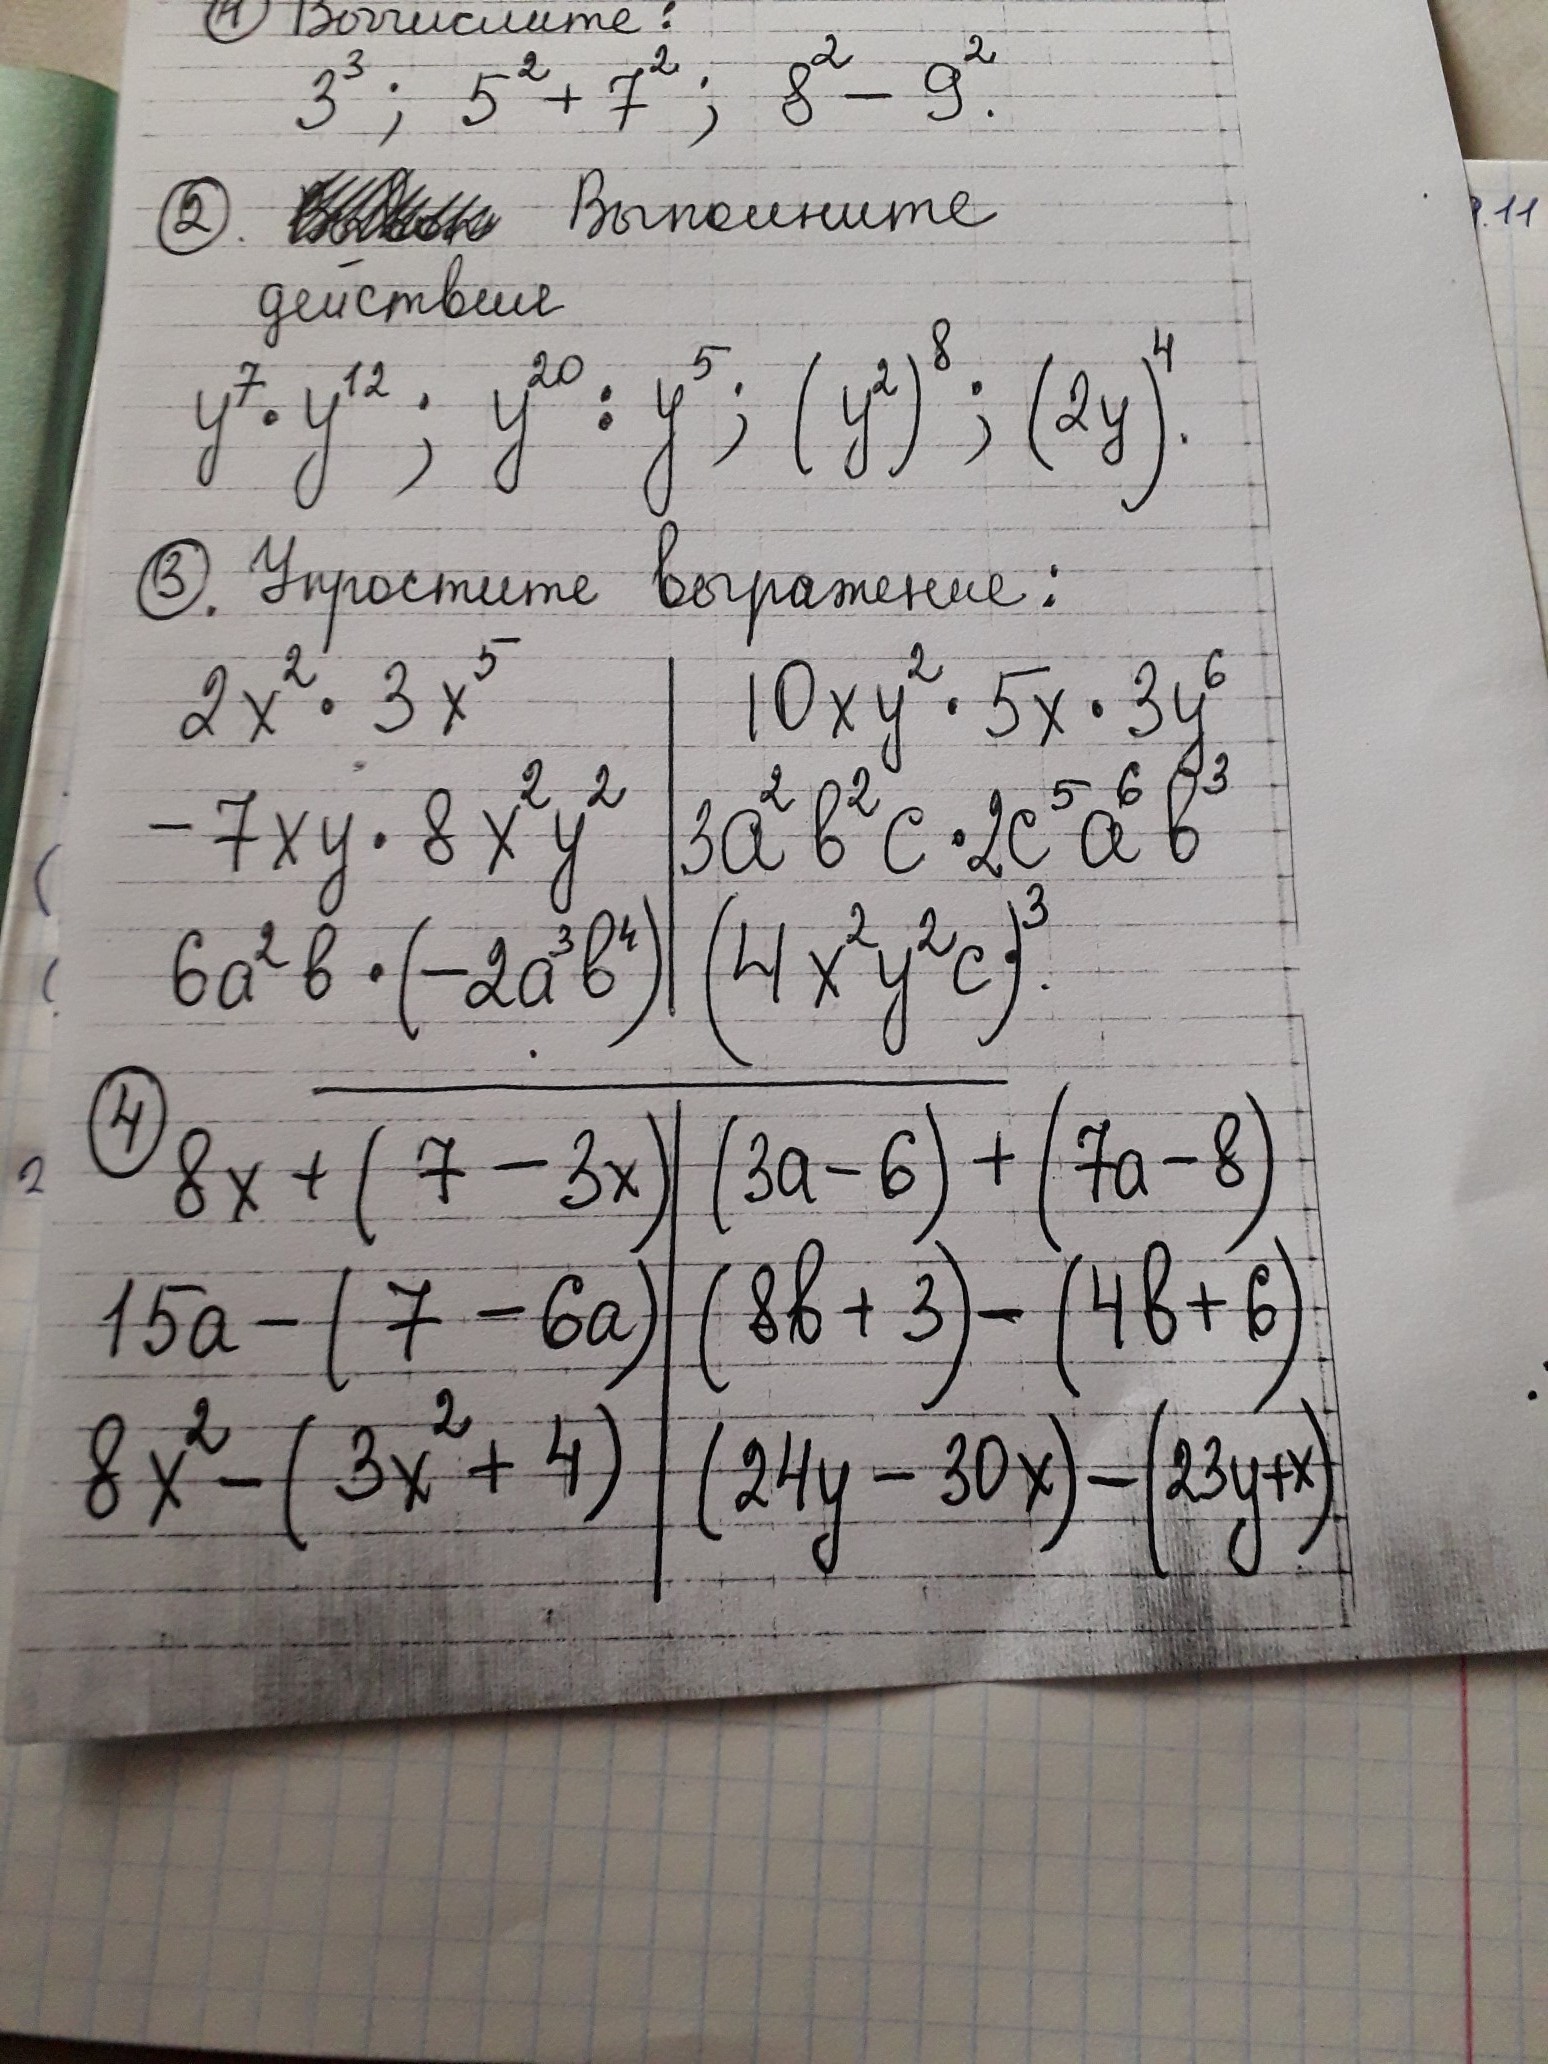 ① Вычислите:
3³; 5² + 7²; 8² − 9².
②. Выполните
действие
y⁷ · y¹²; y²⁰ : y⁵; (y²)⁸; (2y)⁴.
③. Упростите выражение:
2x² · 3x⁵ | 10xy² · 5x · 3y⁶
−7xy · 8x²y² | 3a²b²c · 2c⁵a⁶b³
6a²b · (−2a³b⁴) | (4x²y²c)³.
④ 8x + (7 − 3x) | (3a − 6) + (7a − 8)
15a − (7 − 6a) | (8b + 3) − (4b + 6)
8x² − (3x² + 4) | (24y − 30x) − (23y + x)
.11
2